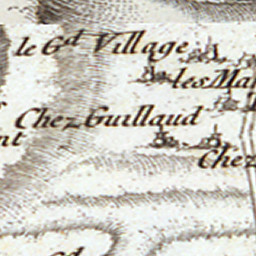 le Gd. Village
les Ma
Chez Guillaud
nt
Chez